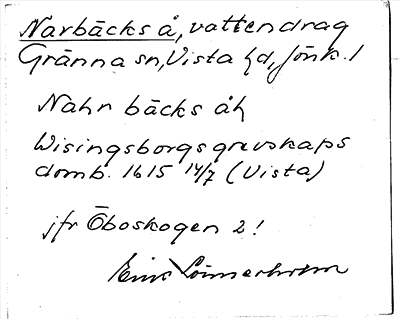 Narbäcks å, vattendrag
Gränna sn, Vista hd, Jönk. l
Nahr bäcks åh
Wisingsborgs grevskaps
domb. 1615 14/7 (Vista)
jfr Öboskogen 2!